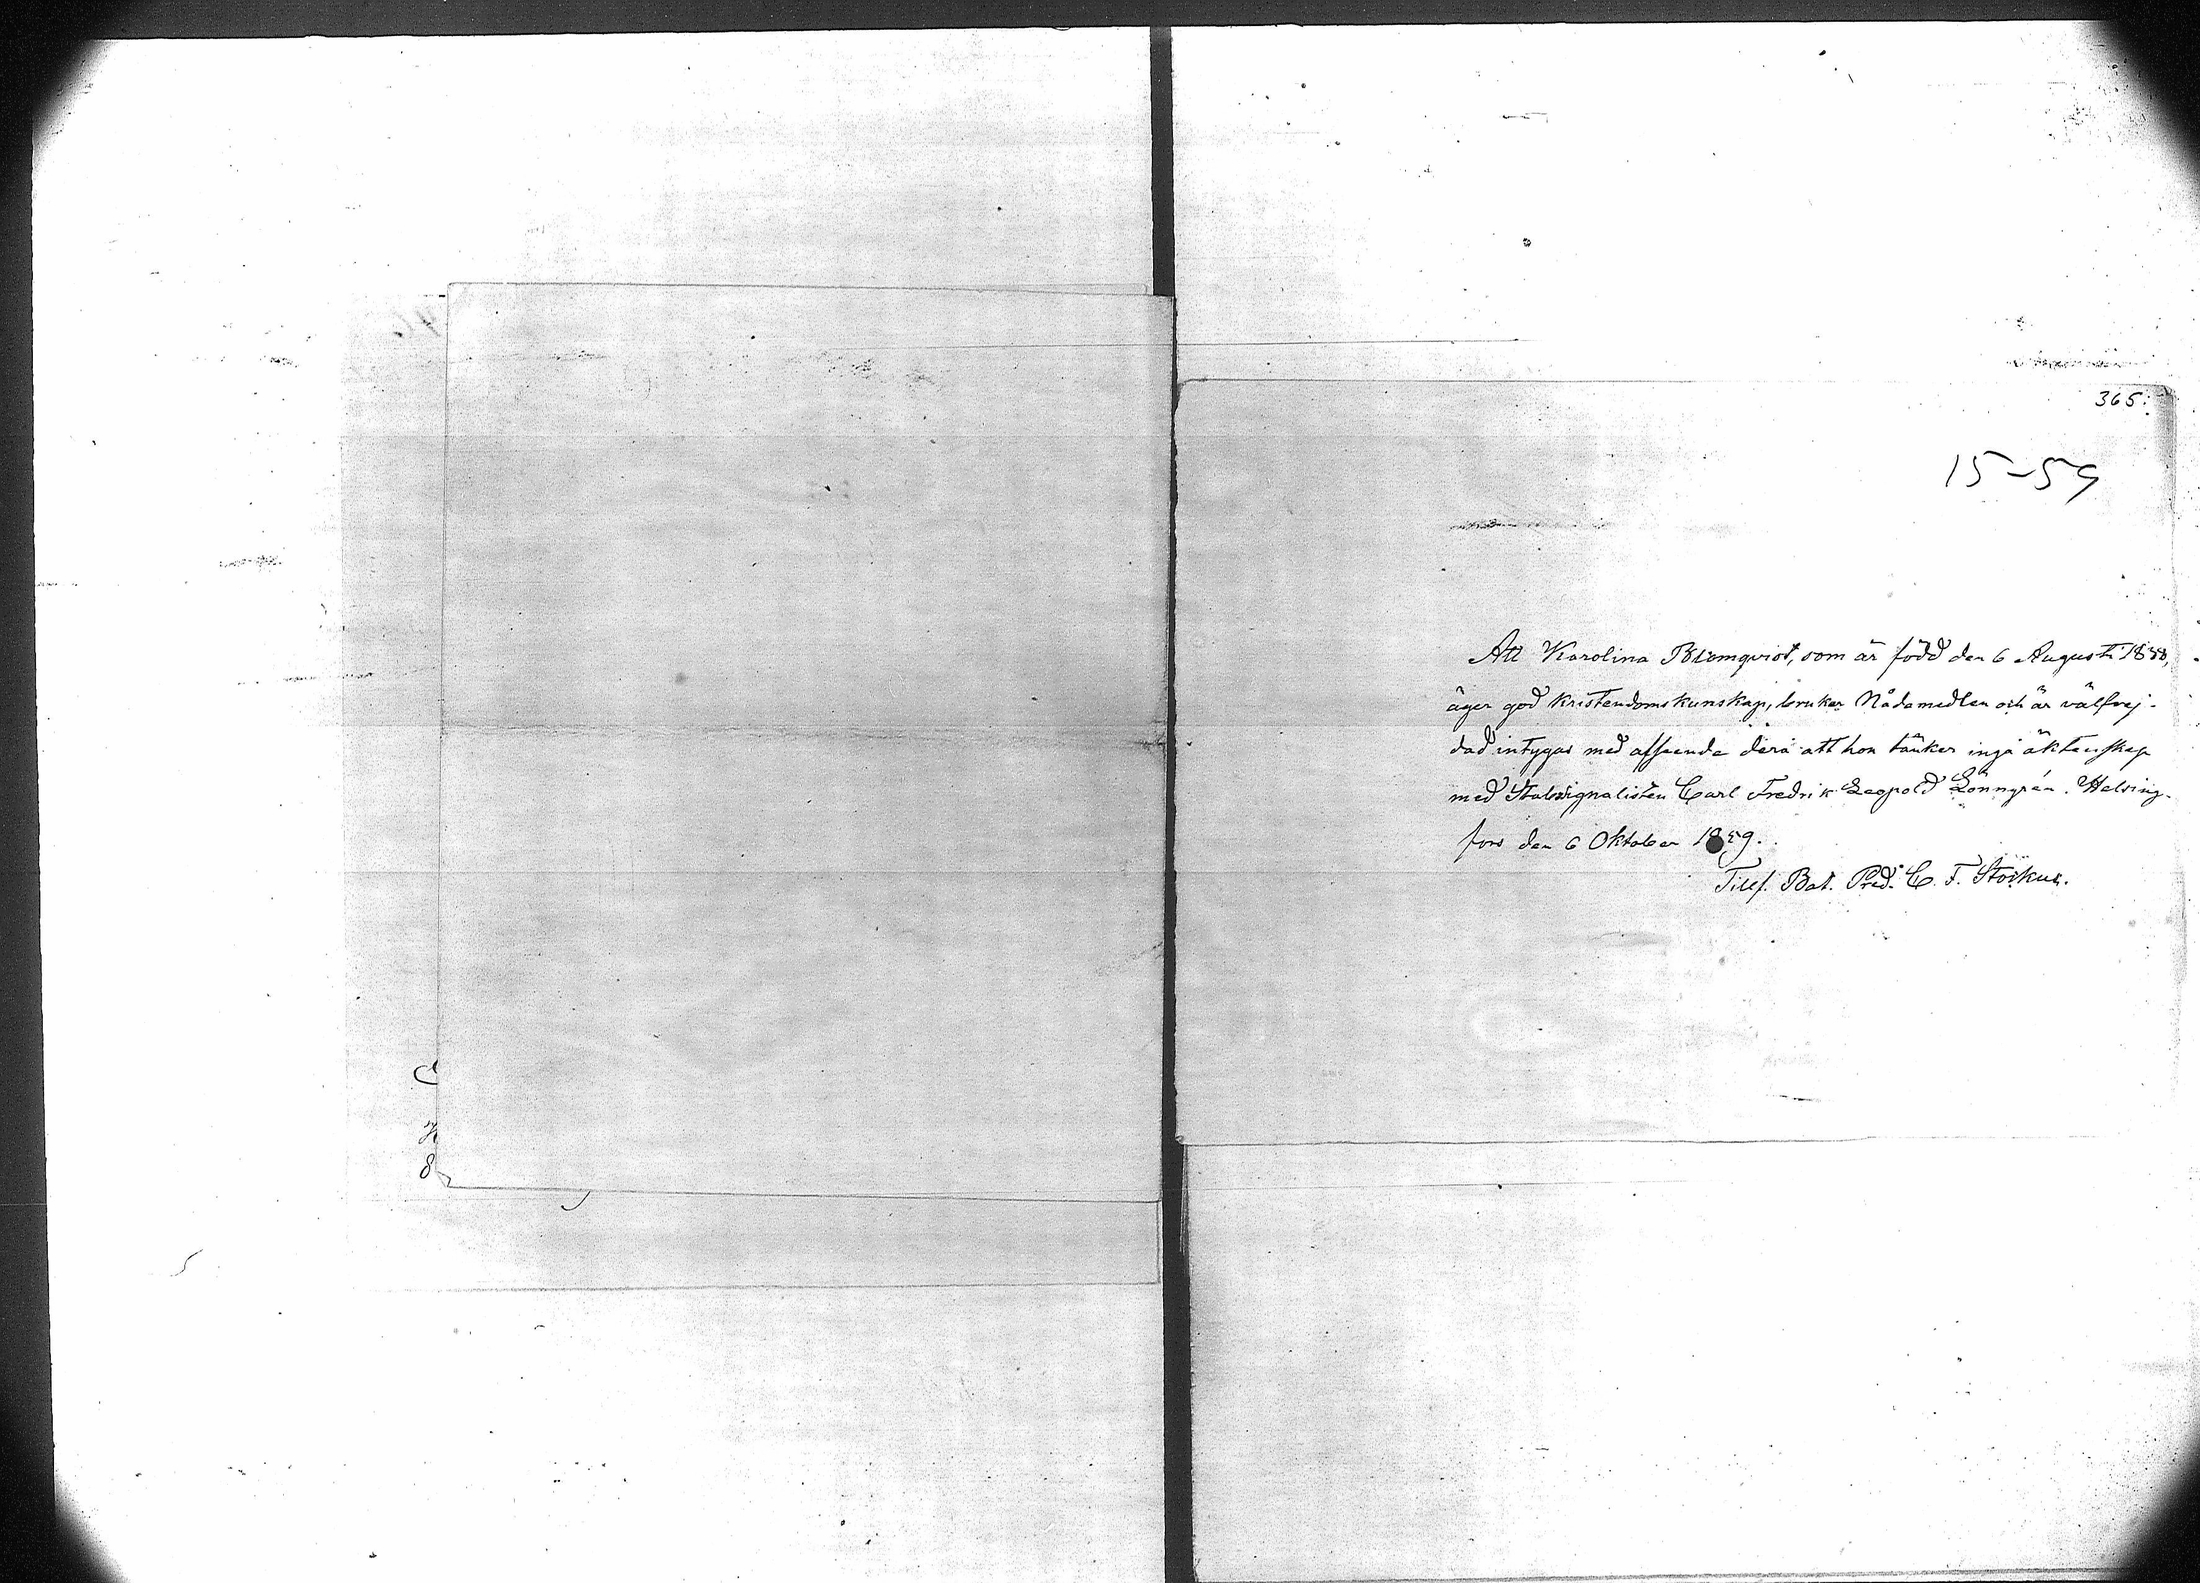 365.
15-59
Att Karolina Blomqvist, som är född den 6 Augusti 1838,
äger god kristendomskunskap, bruker Nådemedlen och är välfrej-
dad intygas med afseende derå att hon tänker ingå äktenskap
med Stabssignalisten Carl Fredrik Leopold Lönngrén. Helsing-
fors den 6 Oktober 1859.
Tillf. Bat. Pred. C. F.